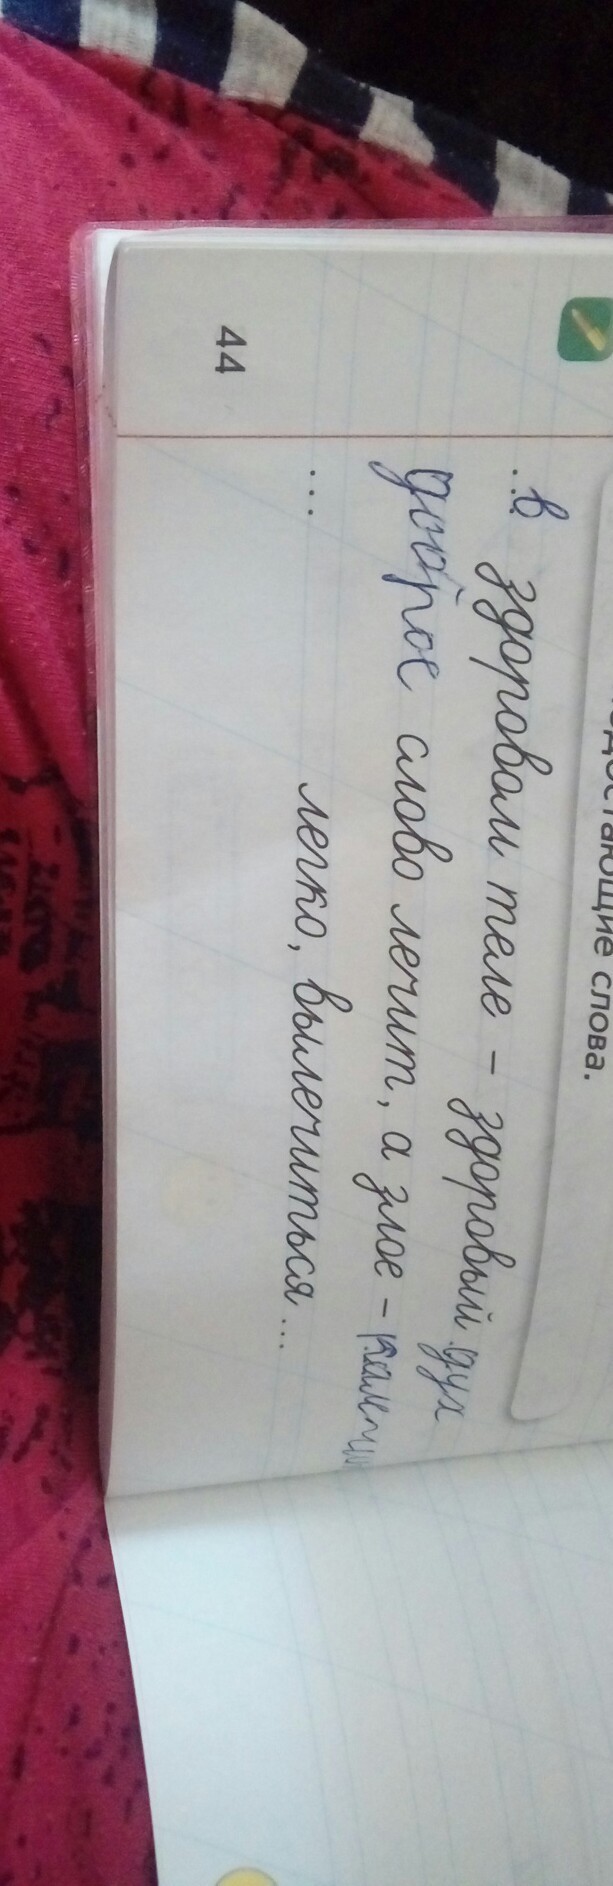 недостающие слова.
..в здоровом теле – здоровый дух
доброе слово лечит, а злое – калечи
... легко, вылечиться ...
44